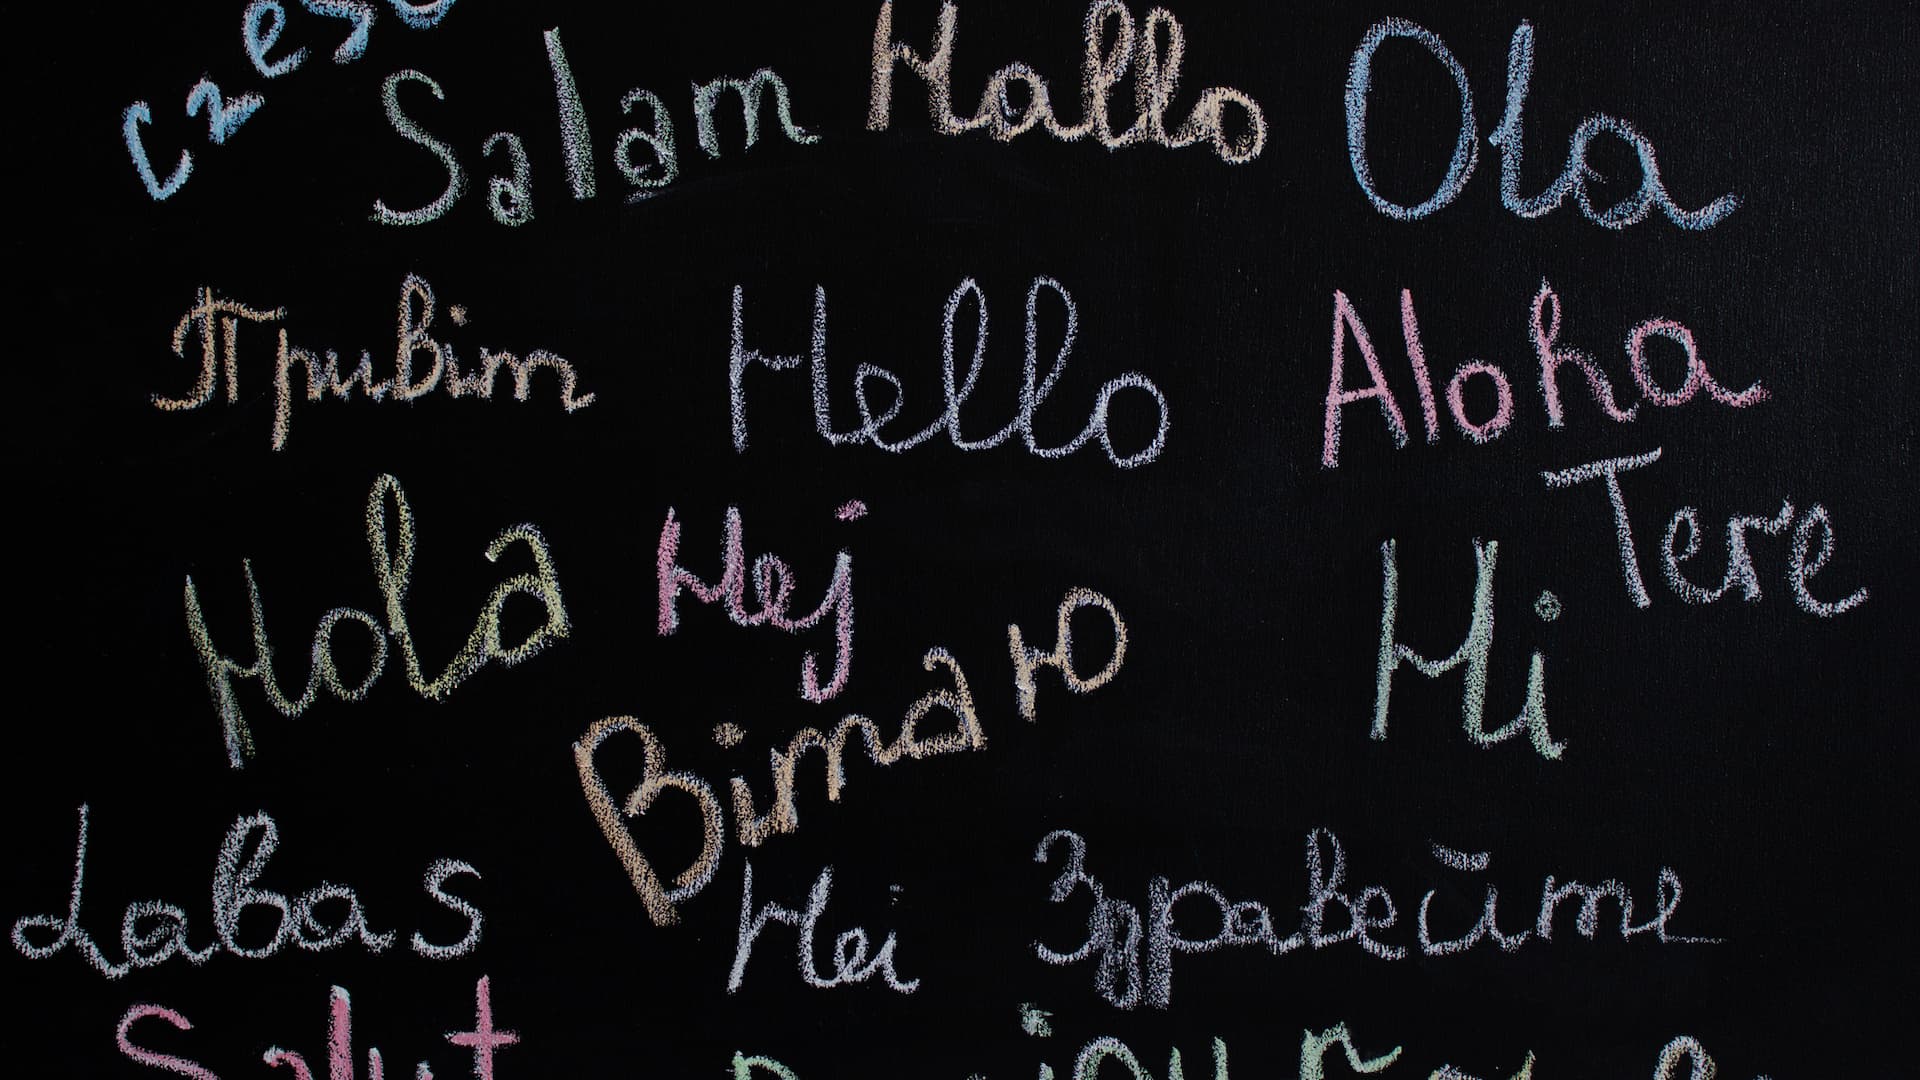 Salam Hallo Ola
Привіт Hello Aloha
Tere
Hola Hej Hi
Вітаю
Labas Hei Здравейте
Salut